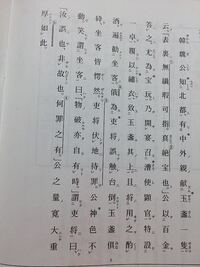 韓魏公知北都有中外親献玉盞一隻
云表裏無繊瑕可指真絶宝也公以百金
答之尤為宝玩乃開宴召漕使顕官特設
一卓覆以繡衣致玉盞其上且将用之酌
酒遍勧坐客俄為吏将誤触台倒玉盞俱
砕坐客皆愕然吏将伏地待罪公神色不
動笑謂坐客曰「物破亦自有時」謂吏将曰
「汝誤也非故也何罪之有」公之量寛大重
厚如此